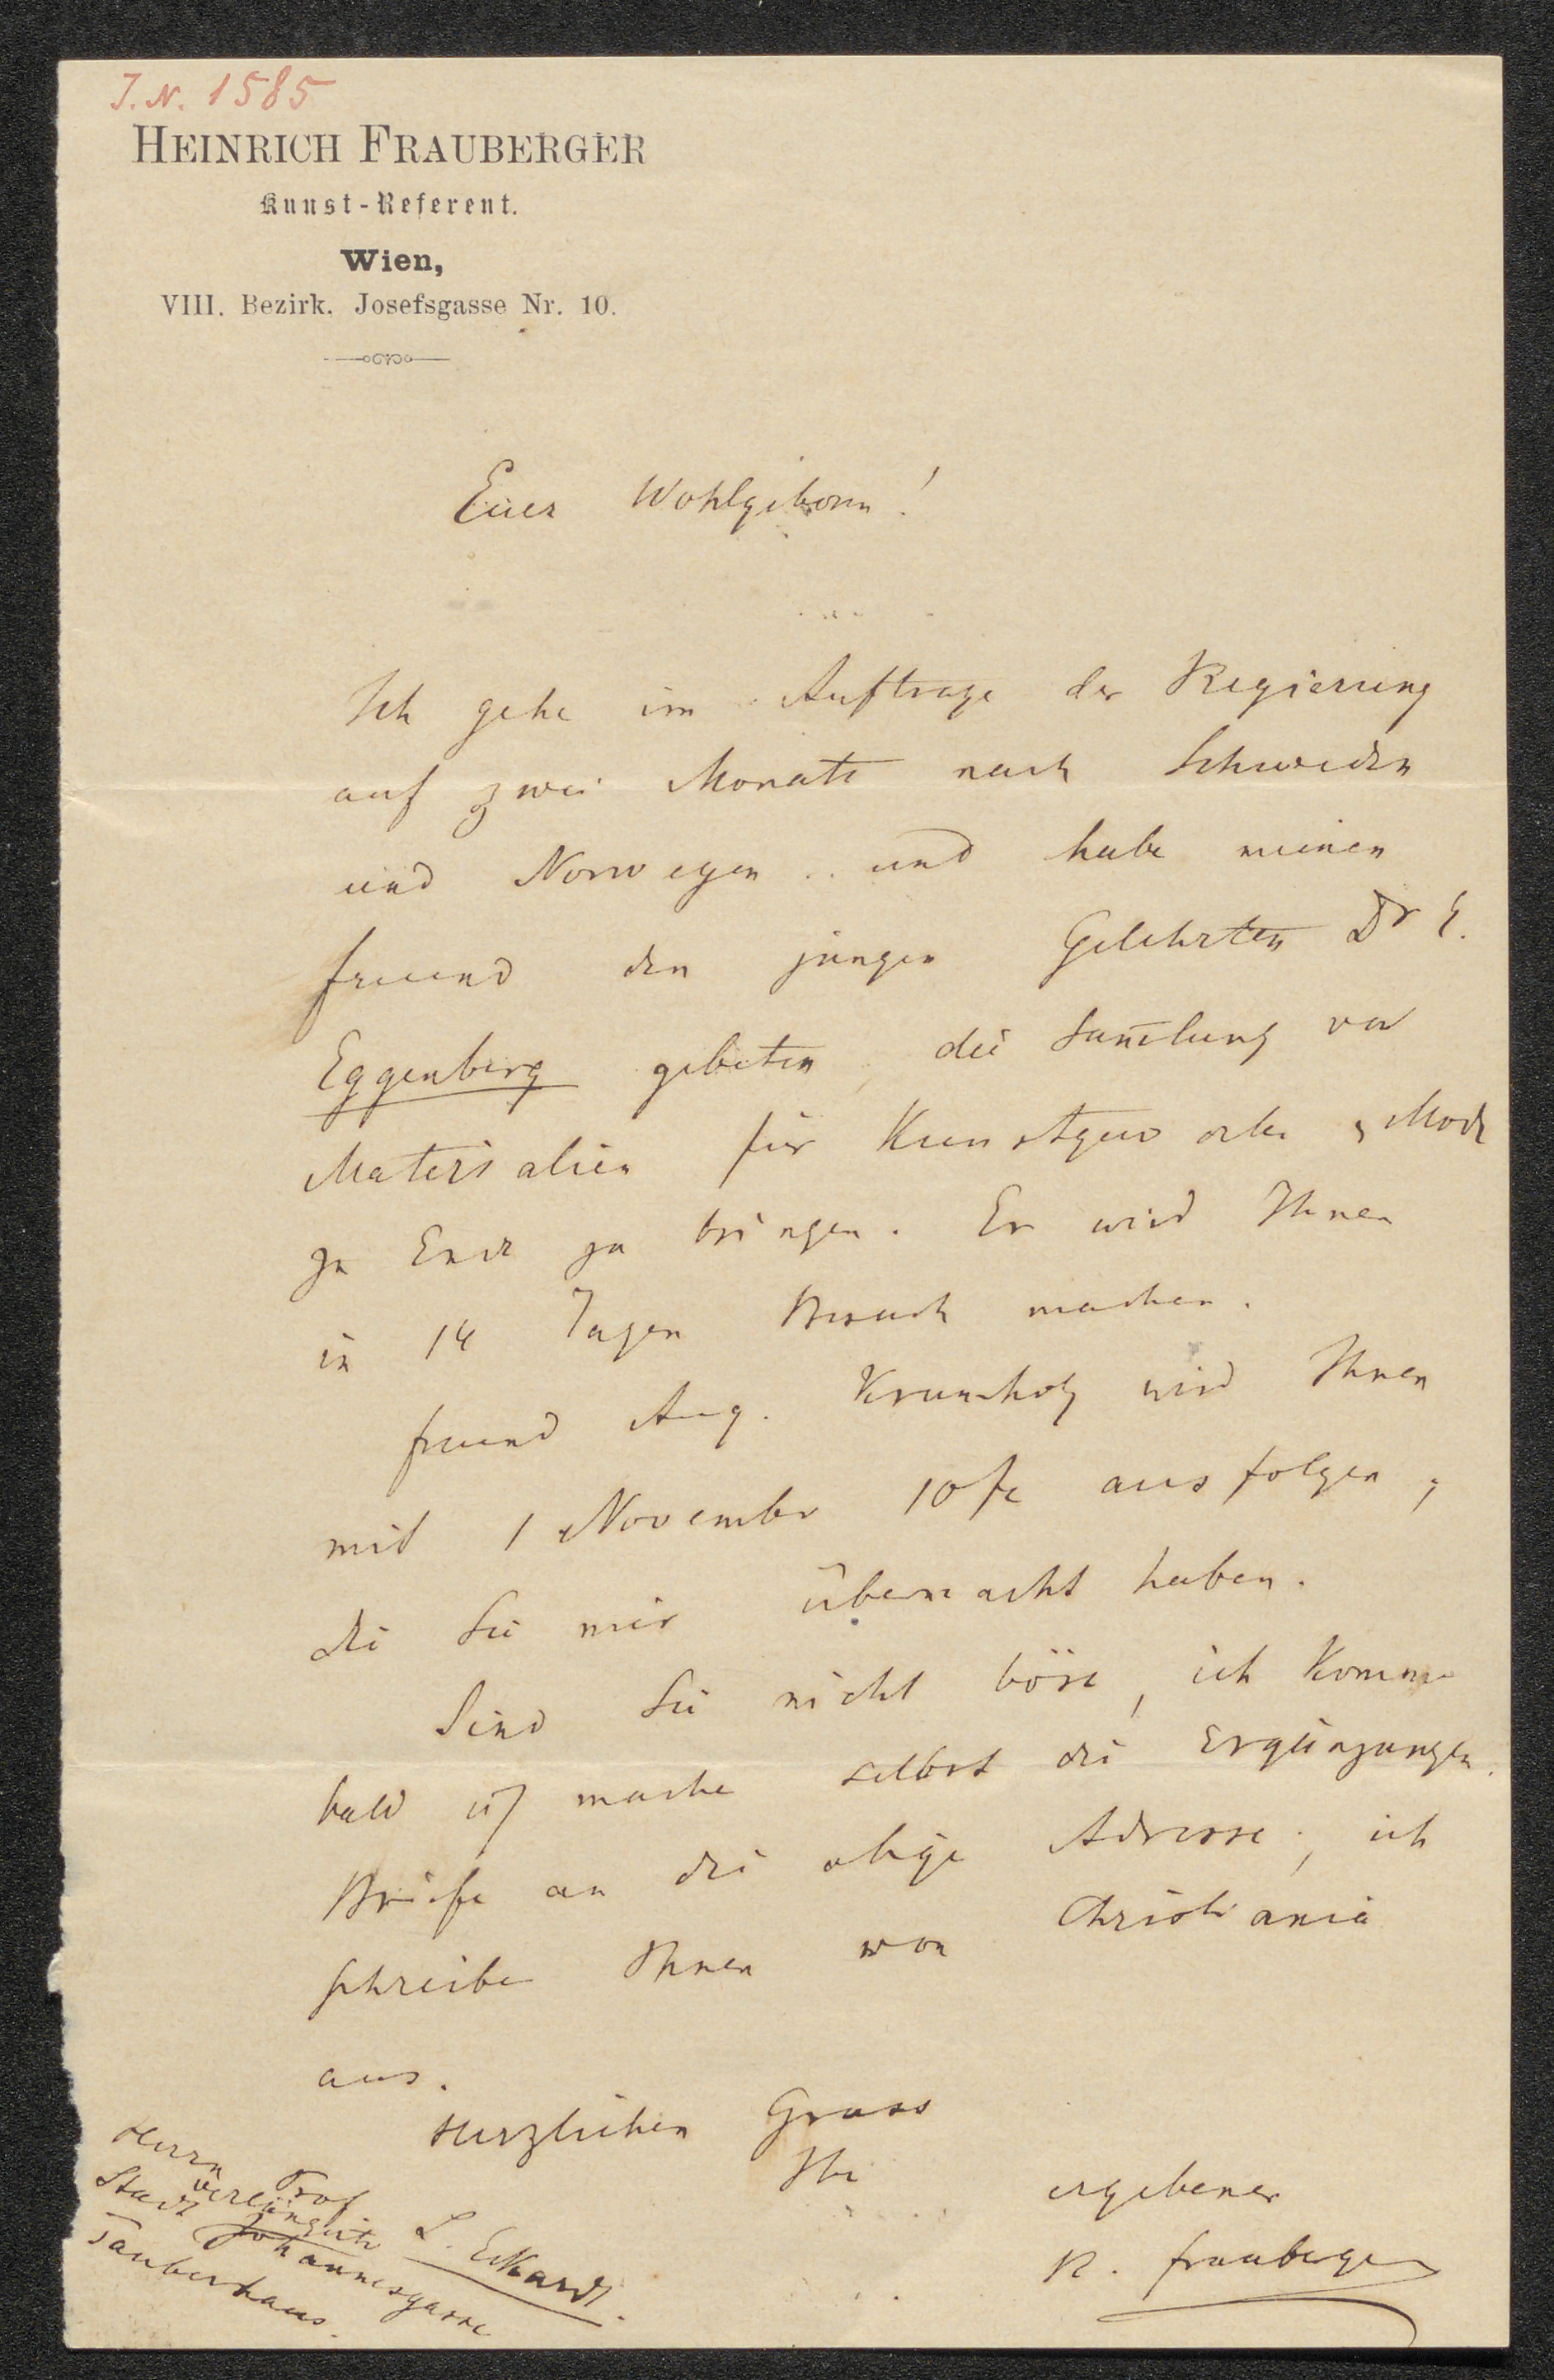 J. N. 1585
HEINRICH FRAUBERGER
Kunst-Referent.
Wien,
VIII. Bezirk. Josefsgasse Nr. 10.
Euer Wohlgeborn!
Ich gehe im Auftrage der Regierung
auf zwei Monate nach Schweden
und Norwegen .. und habe meinen
Freund den jungen Gelehrten Dr E.
Eggenberg gebeten, die Sam̄lung von
Materialien für Kunstgewerbe u Mode
zu Ende zu bringen. Er wird Ihnen
in 14 Tagen Besuch machen.
Freund Aug. Krumholz wird Ihnen
mit 1 November 10 fl ausfolgen,
die Sie mir übermacht haben.
Sind Sie nicht böse, ich komme
bald u mache selbst die Ergänzungen.
Briefe an die obige Adresse; ich
schreibe Ihnen von Christiania
aus.
Herzlichen Gruss
Ihr ergebener
H. Frauberger
Herrn Prof L. Eckhardt.
Stadt verlängerte Johannesgasse
Tauberhaus.